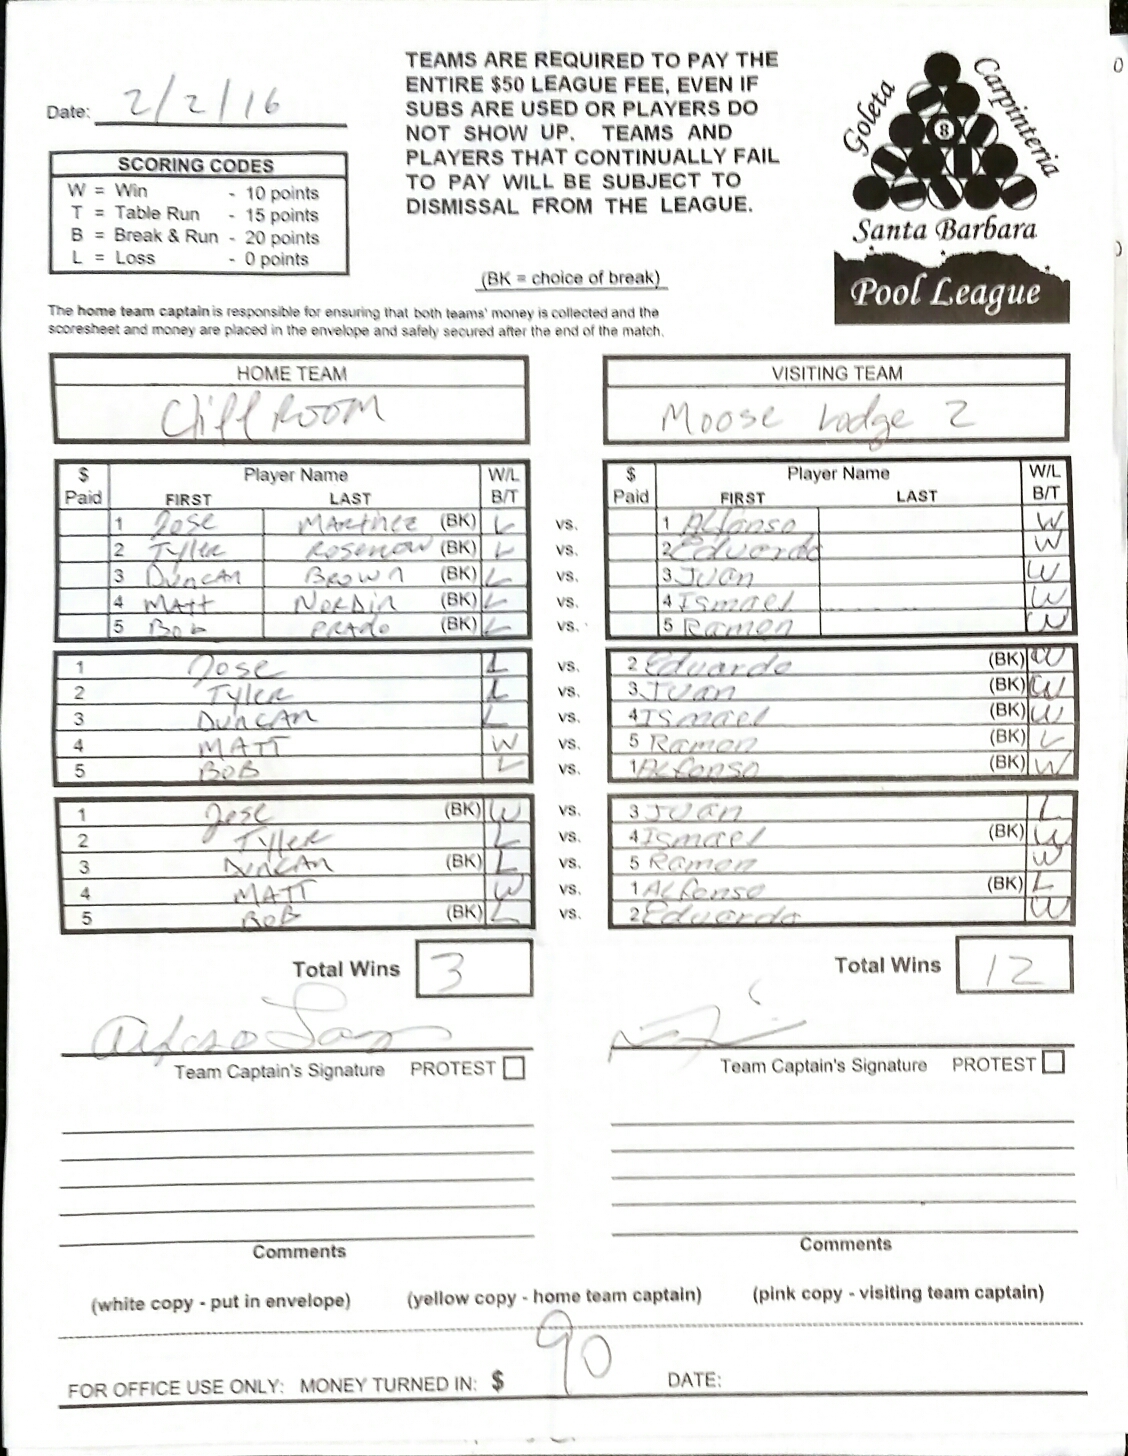 TEAMS ARE REQUIRED TO PAY THE
ENTIRE $50 LEAGUE FEE, EVEN IF
SUBS ARE USED OR PLAYERS DO
NOT SHOW UP. TEAMS AND
PLAYERS THAT CONTINUALLY FAIL
TO PAY WILL BE SUBJECT TO
DISMISSAL FROM THE LEAGUE.
Date: 2/2/16
SCORING CODES
W = Win - 10 points
T = Table Run - 15 points
B = Break & Run - 20 points
L = Loss - 0 points
(BK = choice of break)
Goleta
Carpinteria
8
Santa Barbara
Pool League
The home team captain is responsible for ensuring that both teams' money is collected and the
scoresheet and money are placed in the envelope and safely secured after the end of the match.
HOME TEAM VISITING TEAM
Cliff ROOM Moose Lodge 2
$ Player Name W/L $ Player Name W/L
Paid FIRST LAST B/T Paid FIRST LAST B/T
1 Jose MARtiNez (BK) L vs. 1 Alfonso W
2 Tyler Rosenow (BK) L vs. 2 Eduardo W
3 DuncAN BROWN (BK) L vs. 3 Juan W
4 MAtt NORDIN (BK) L vs. 4 Ismael W
5 Bob PRADO (BK) L vs. 5 Ramon W
1 Jose L vs. 2 Eduardo (BK) W
2 TYLER L vs. 3 Juan (BK) W
3 DUNCAN L vs. 4 Ismael (BK) W
4 MATT W vs. 5 Ramon (BK) L
5 BOB L vs. 1 Alfonso (BK) W
1 Jose (BK) W vs. 3 Juan L
2 Tyler L vs. 4 Ismael (BK) W
3 DUNCAN (BK) L vs. 5 Ramon W
4 MATT W vs. 1 Alfonso (BK) L
5 BOB (BK) L vs. 2 Eduardo W
Total Wins 3 Total Wins 12
Team Captain's Signature PROTEST Team Captain's Signature PROTEST
Comments Comments
(white copy - put in envelope) (yellow copy - home team captain) (pink copy - visiting team captain)
FOR OFFICE USE ONLY: MONEY TURNED IN: $ 90 DATE: